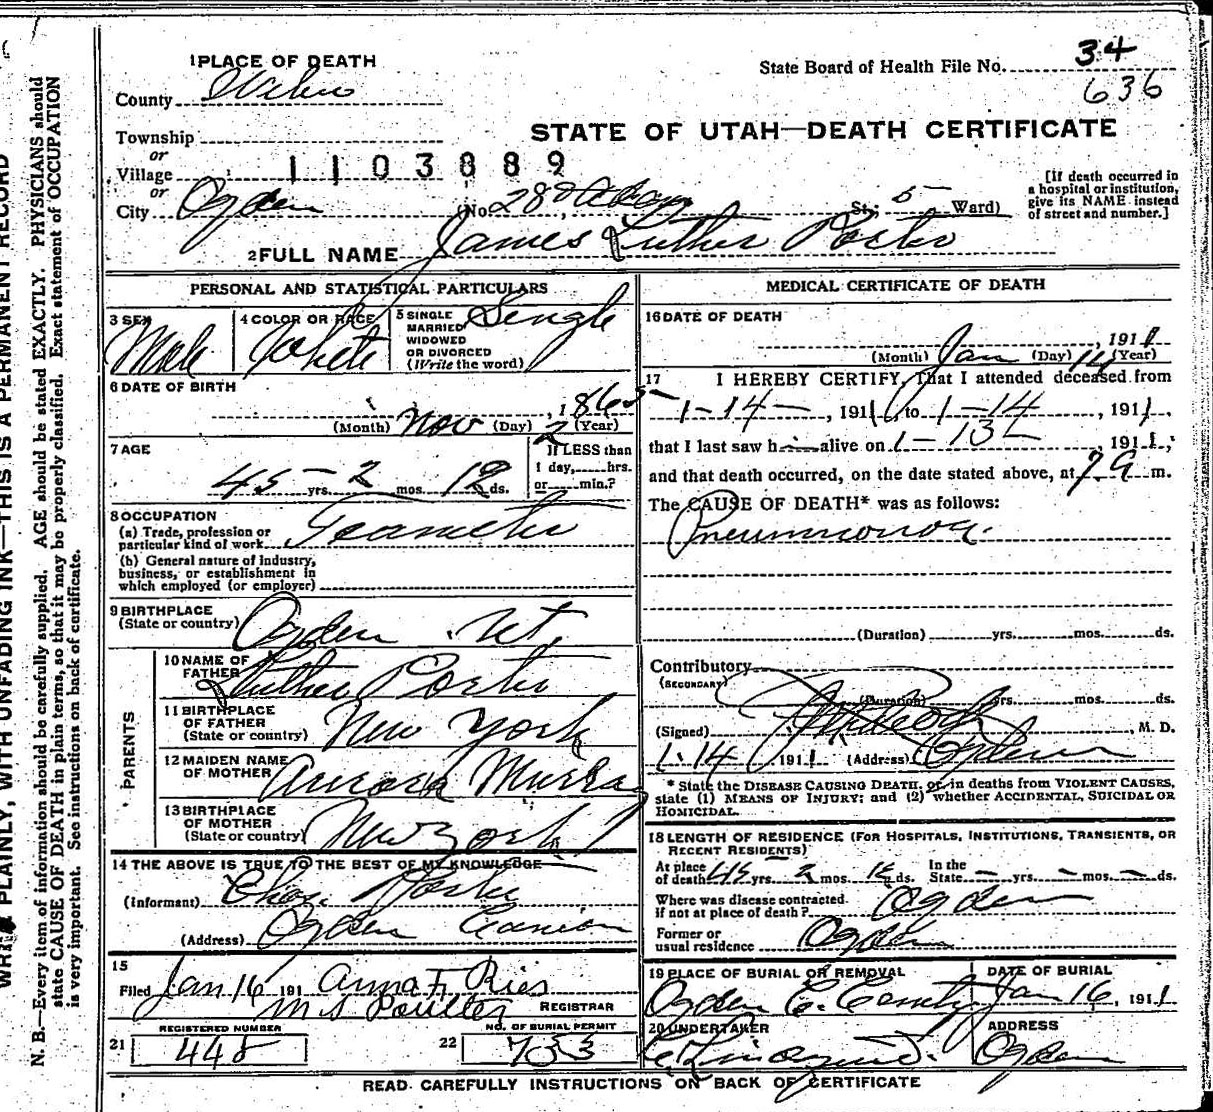 1 PLACE OF DEATH
State Board of Health File No. 34
636
County Weber
STATE OF UTAH—DEATH CERTIFICATE
Township
or
Village
1103889
or
City Ogden (No. 28 St.; 5 Ward)
[If death occurred in a hospital or institution, give its NAME instead of street and number.]
2 FULL NAME James Luther Porter
PERSONAL AND STATISTICAL PARTICULARS
3 SEX Male
4 COLOR OR RACE White
5 SINGLE MARRIED WIDOWED OR DIVORCED (Write the word) Single
6 DATE OF BIRTH
(Month) Nov (Day) 2 (Year) 1865
7 AGE
45 yrs. 2 mos. 12 ds.
If LESS than 1 day, hrs. or min.?
8 OCCUPATION
(a) Trade, profession or particular kind of work Teamster
(b) General nature of industry, business, or establishment in which employed (or employer)
9 BIRTHPLACE (State or country) Ogden Ut.
PARENTS
10 NAME OF FATHER Luther Porter
11 BIRTHPLACE OF FATHER (State or country) New York
12 MAIDEN NAME OF MOTHER Aurora
13 BIRTHPLACE OF MOTHER (State or country) New York
14 THE ABOVE IS TRUE TO THE BEST OF MY KNOWLEDGE
(Informant) Chas. Porter
(Address) Ogden Canion
15
Filed Jan 16 191 Anna F. Ries
M S Poulter REGISTRAR
REGISTERED NUMBER
21 448
NO. OF BURIAL PERMIT
22 733
MEDICAL CERTIFICATE OF DEATH
16 DATE OF DEATH
(Month) Jan (Day) 14 (Year) 1911
17 I HEREBY CERTIFY, That I attended deceased from
1-14-, 1911 to 1-14, 1911,
that I last saw h alive on 1-13, 1911;
and that death occurred, on the date stated above, at 7 a m.
The CAUSE OF DEATH* was as follows:
Pneumonia.
(Duration) yrs. mos. ds.
Contributory
(SECONDARY)
(Duration) yrs. mos. ds.
(Signed) , M. D.
1-14 1911 (Address) Ogden
* State the DISEASE CAUSING DEATH, or, in deaths from VIOLENT CAUSES,
state (1) MEANS OF INJURY; and (2) whether ACCIDENTAL, SUICIDAL OR
HOMICIDAL.
18 LENGTH OF RESIDENCE (FOR HOSPITALS, INSTITUTIONS, TRANSIENTS, OR
RECENT RESIDENTS)
At place of death 45 yrs. 2 mos. 12 ds. In the State — yrs. — mos. — ds.
Where was disease contracted if not at place of death? Ogden
Former or usual residence Ogden
19 PLACE OF BURIAL OR REMOVAL
Ogden C. Cemty
DATE OF BURIAL
Jan 16, 1911
20 UNDERTAKER
ADDRESS
Ogden
READ CAREFULLY INSTRUCTIONS ON BACK OF CERTIFICATE
PLAINLY, WITH UNFADING INK—THIS IS A PERMANENT RECORD
N. B.—Every item of information should be carefully supplied. AGE should be stated EXACTLY. PHYSICIANS should
state CAUSE OF DEATH in plain terms, so that it may be properly classified. Exact statement of OCCUPATION
is very important. See instructions on back of certificate.